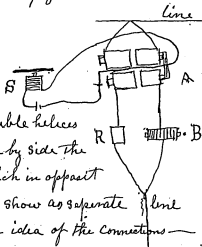 line
S
A
uble helices
R
B
by side the
ich in oppasit
show as seperate line
idea of the connections —